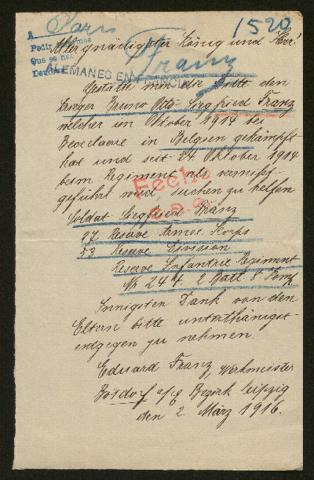 1520
A Paris
Franz
Allergnädigster König und Herr!
ALEMANES EN
Gestatte mir die Bitte den
Krieger Bruno Otto Siegfried Franz
welcher im Oktober 1914 bei
Becelaere in Belgien gekämpft
hat und seit 24. Oktober 1914
beim Regiment als vermißt
geführt wird suchen zu helfen
Fecha
Soldat Siegfried Franz
27 Reserve Armee Korps
53 Reserve Division
Reserve Infantrie Regiment
Nr 244. 2 Batl. 8 Komp
Innigsten Dank von den
Eltern bitte unterthänigst
entgegen zu nehmen.
Eduard Franz, Werkmeister
Bösdorf a/E Bezirk Leipzig
den 2. März 1916.